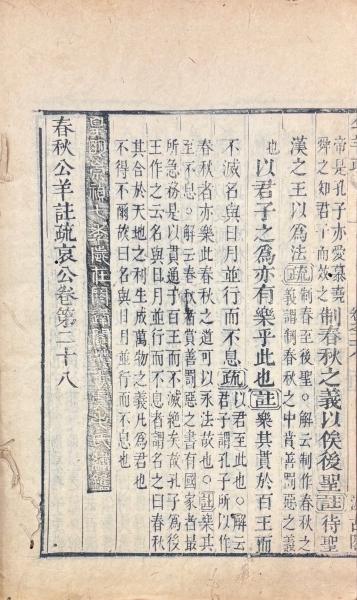 帝是孔子亦愛慕堯
舜之知君子而效之
制春秋之義以俟後聖註待聖
漢之王以為法疏
制春至後聖。解云制作春秋之
義謂制春秋之中賞善罰惡之義
也以君子之為亦有樂乎此也註樂其貫於百王而
不滅名與日月並行而不息疏
以君至此也。解云
君子謂孔子所以作
春秋者亦樂此春秋之道可以永法故也。註樂其
至不息。解云春秋者賞善罰惡之書有國家者最
所急務是以貫通于百王而不滅絕矣故孔子為後
王作之云名與日月並行而不息者謂名之曰春秋
其合於天地之利生成萬物之義凡為君也
不得不爾故曰名與日月並行而不息也
皇明崇禎七年歲在閼逢閹茂古虞毛氏繡鐫
春秋公羊註疏哀公卷第二十八